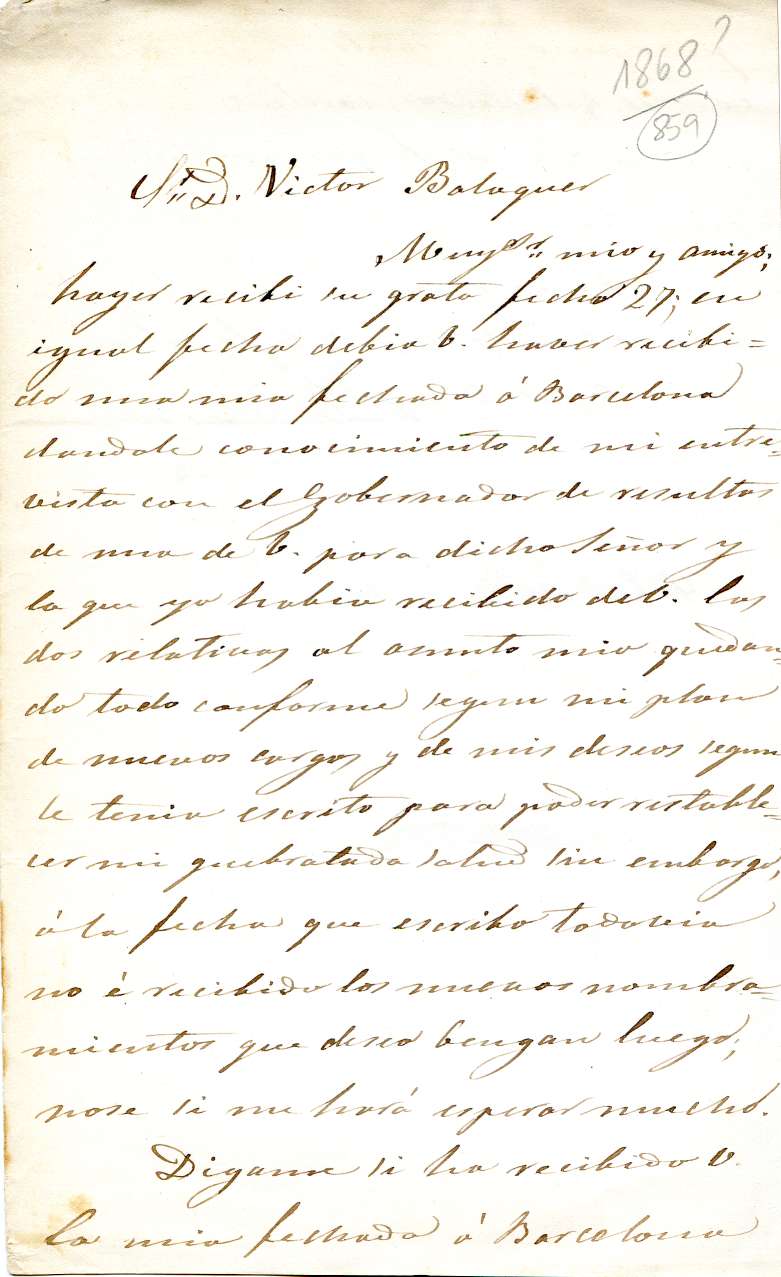 1868?
859
Sr. D. Victor Balaguer
Muy Sr. mio y amigo;
hayer recibi su grata fecha 27; en
igual fecha debia V. haver recibi=
do una mia fechada á Barcelona
dandole conocimiento de mi entre=
vista con el Gobernador de resultas
de una de V. para dicho Señor y
la que yo habia recibido de V. las
dos relativas al asunto mio quedan=
do todo conforme segun mi plan
de nuevos cargos y de mis deseos segun
le tenia escrito para poder restable=
cer mi quebratada salud sin embargo,
á la fecha que escribo todavia
no é recibido los nuevos nombra=
mientos que deseo bengan luego;
nose si me hará esperar mucho.
Digame si ha recibido V.
la mia fechada á Barcelona